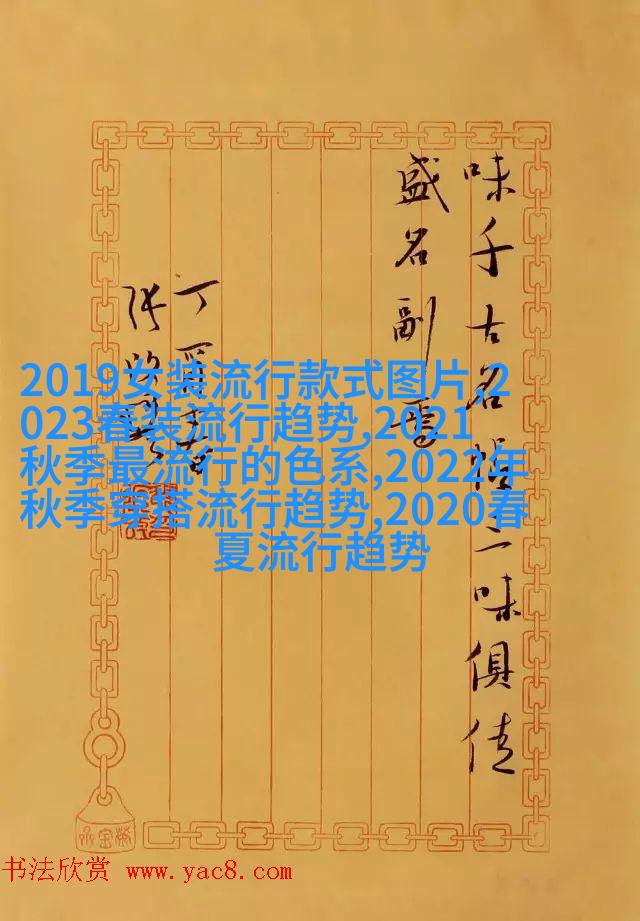 味千古名帖二味俱佳
盛名副焉
丁酉
张
2019女装流行款式图片,2
023春装流行趋势,2021
秋季最流行的色系,2022年
秋季穿搭流行趋势,2020春
夏流行趋势
书法欣赏 www.yac8.com